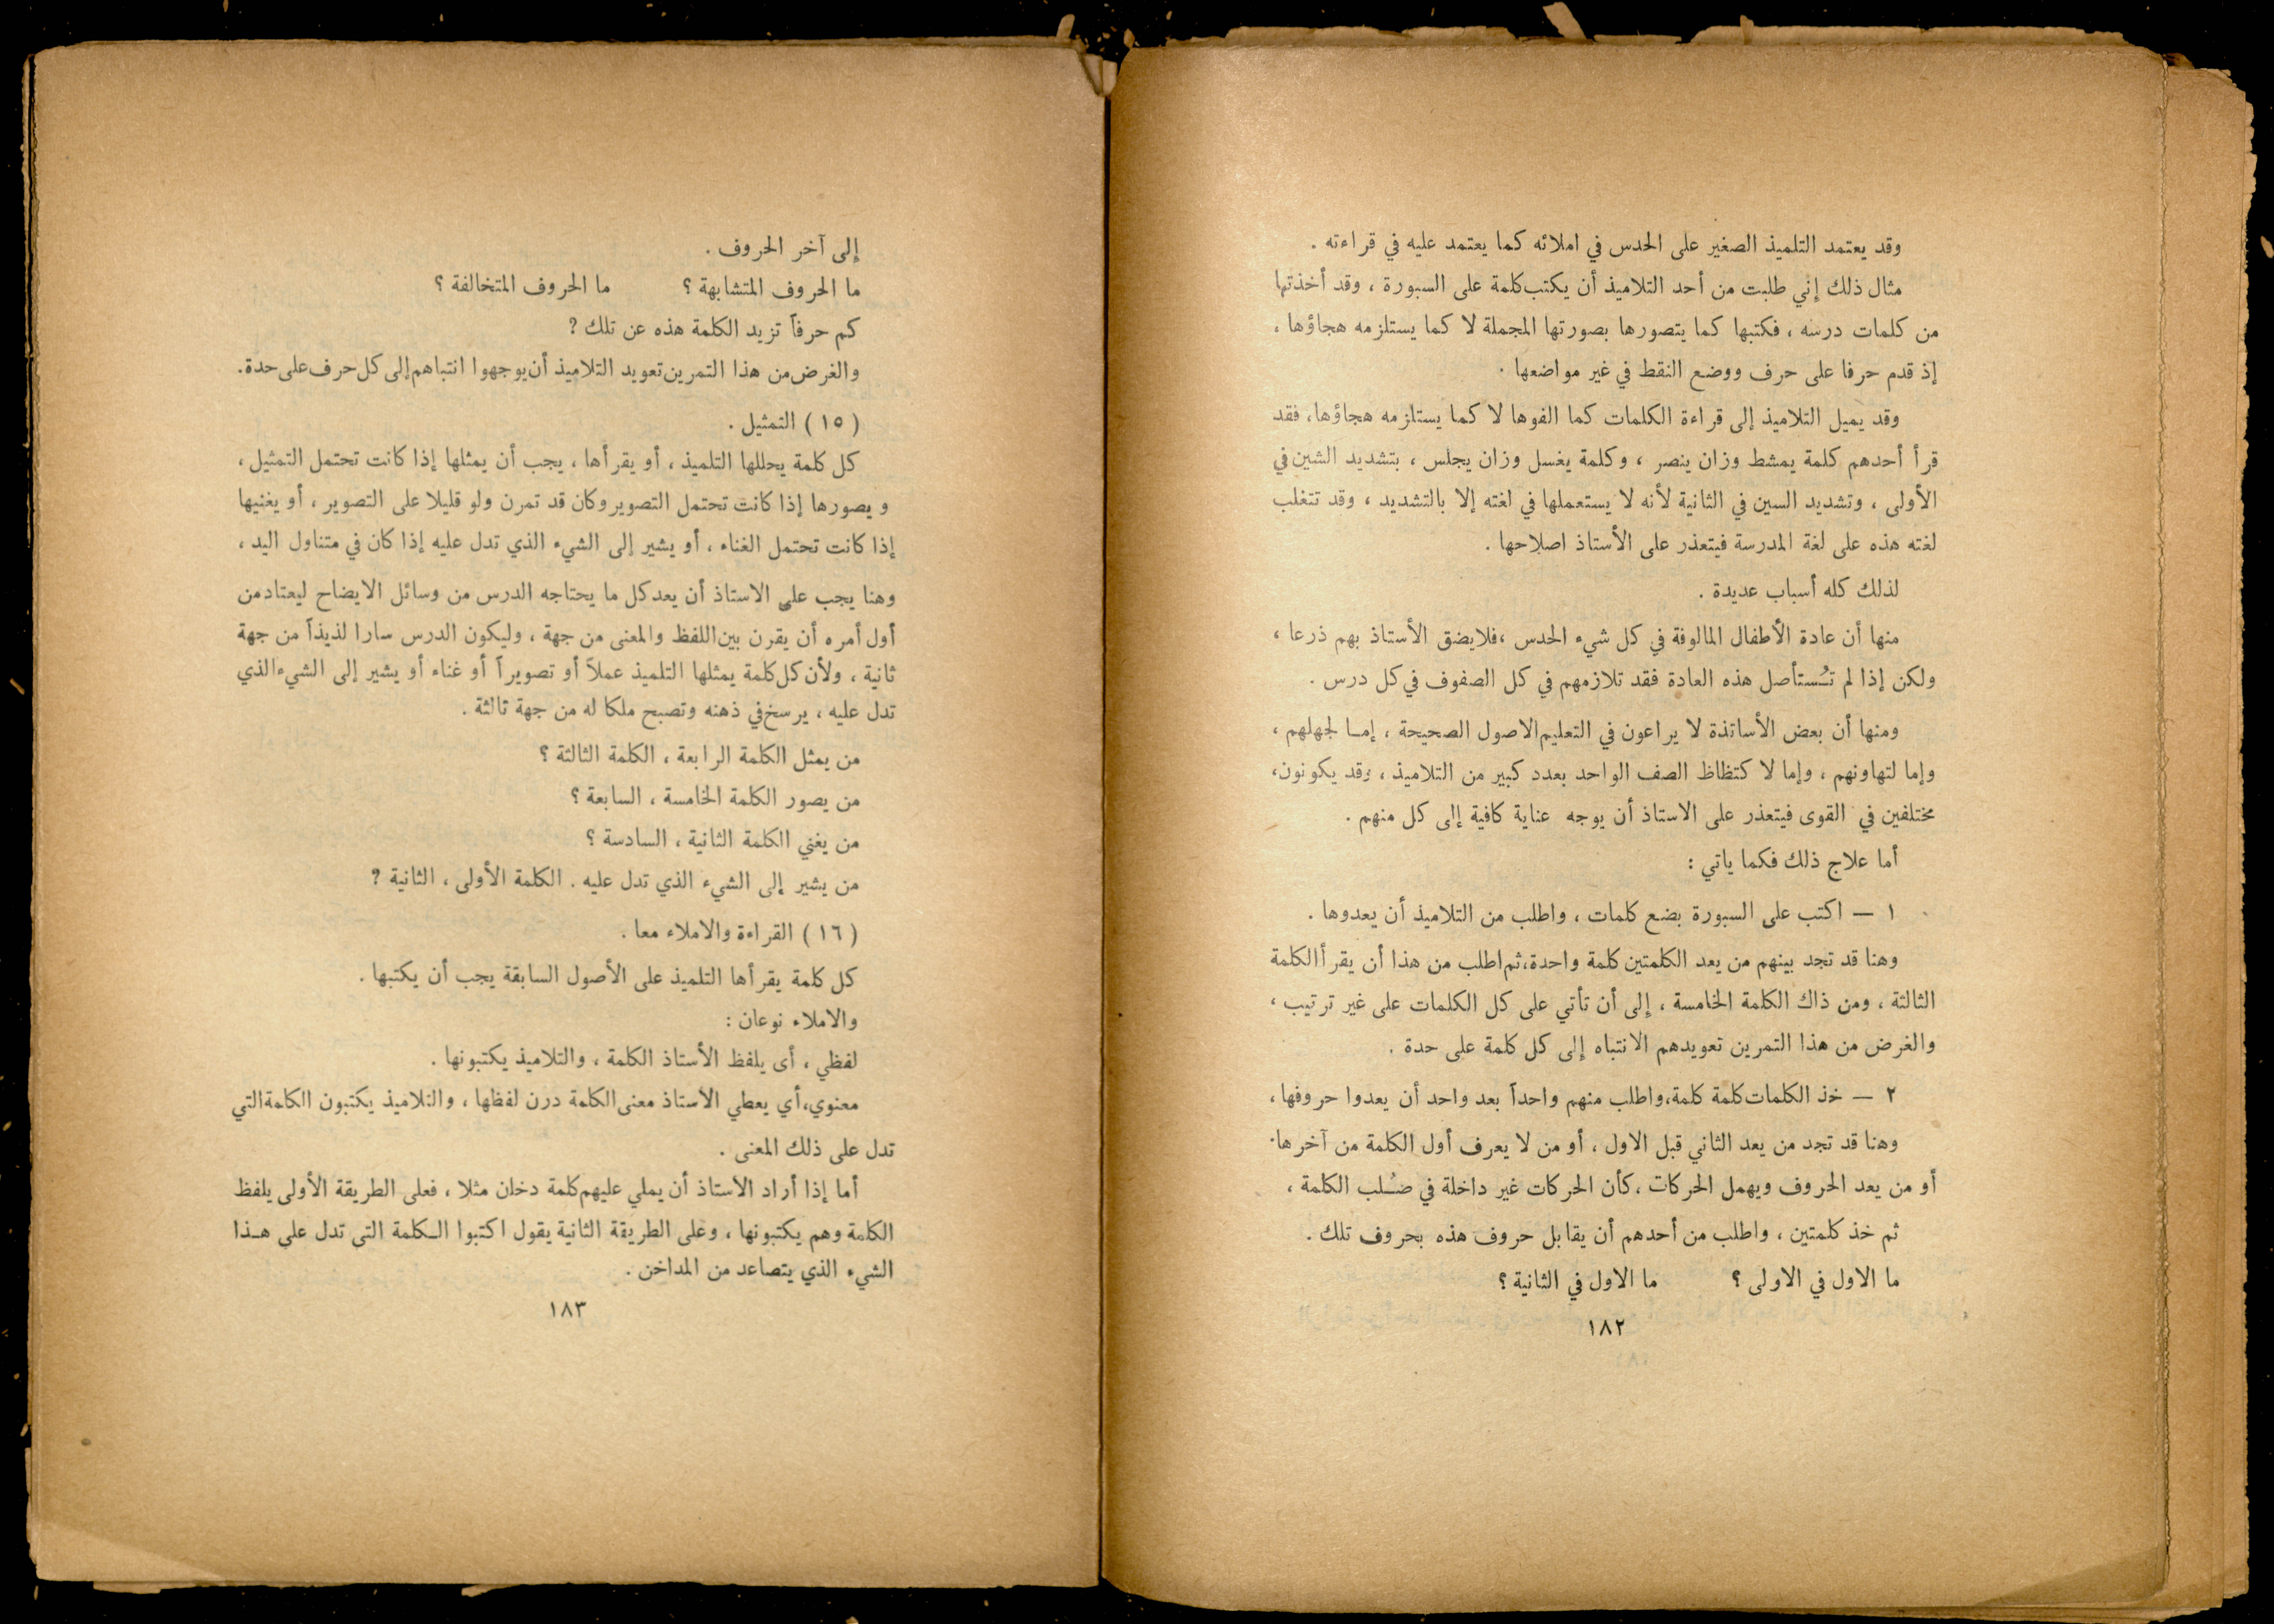 وقد يعتمد التلميذ الصغير على الحدس في املائه كما يعتمد عليه في قراءته .
مثال ذلك إني طلبت من أحد التلاميذ أن يكتب كلمة على السبورة ، وقد أخذتها
من كلمات درسه ، فكتبها كما يتصورها بصورتها المجملة لا كما يستلزمه هجاؤها ،
إذ قدم حرفا على حرف ووضع النقط في غير مواضعها .
وقد يميل التلاميذ إلى قراءة الكلمات كما الفوها لا كما يستلزمه هجاؤها ، فقد
قرأ أحدهم كلمة يمشط وزان ينصر ، وكلمة يغسل وزان يجلس ، بتشديد الشين في
الأولى ، وتشديد السين في الثانية لأنه لا يستعملها في لغته إلا بالتشديد ، وقد تتغلب
لغته هذه على لغة المدرسة فيتعذر على الأستاذ اصلاحها .
لذلك كله أسباب عديدة .
منها أن عادة الأطفال المالوفة في كل شيء الحدس ، فلا يضق الأستاذ بهم ذرعا ،
ولكن إذا لم تُستأصل هذه العادة فقد تلازمهم في كل الصفوف في كل درس .
ومنها أن بعض الأساتذة لا يراعون في التعليم الاصول الصحيحة ، إمـا لجهلهم ،
وإما لتهاونهم ، وإما لا كتظاظ الصف الواحد بعدد كبير من التلاميذ ، وقد يكونون ،
مختلفين في القوى فيتعذر على الاستاذ أن يوجه عناية كافية إلى كل منهم .
أما علاج ذلك فكما ياتي :
١ — اكتب على السبورة بضع كلمات ، واطلب من التلاميذ أن يعدوها .
وهنا قد تجد بينهم من يعد الكلمتين كلمة واحدة ، ثم اطلب من هذا أن يقرأ الكلمة
الثالثة ، ومن ذاك الكلمة الخامسة ، إلى أن تأتي على كل الكلمات على غير ترتيب ،
والغرض من هذا التمرين تعويدهم الانتباه إلى كل كلمة على حدة .
٢ — خذ الكلمات كلمة كلمة ، واطلب منهم واحداً بعد واحد أن يعدوا حروفها ،
وهنا قد تجد من يعد الثاني قبل الاول ، أو من لا يعرف أول الكلمة من آخرها .
أو من يعد الحروف ويهمل الحركات ، كأن الحركات غير داخلة في صُلب الكلمة ،
ثم خذ كلمتين ، واطلب من أحدهم أن يقابل حروف هذه بحروف تلك .
ما الاول في الاولى ؟ ما الاول في الثانية ؟
١٨٢
إلى آخر الحروف .
ما الحروف المتشابهة ؟ ما الحروف المتخالفة ؟
كم حرفاً تزيد الكلمة هذه عن تلك ؟
والغرض من هذا التمرين تعويد التلاميذ أن يوجهوا انتباهم إلى كل حرف على حدة .
( ١٥ ) التمثيل .
كل كلمة يحللها التلميذ ، أو يقرأها ، يجب أن يمثلها إذا كانت تحتمل التمثيل ،
ويصورها إذا كانت تحتمل التصوير وكان قد تمرن ولو قليلا على التصوير ، أو يغنيها
إذا كانت تحتمل الغناء ، أو يشير إلى الشيء الذي تدل عليه إذا كان في متناول اليد ،
وهنا يجب على الاستاذ أن يعد كل ما يحتاجه الدرس من وسائل الايضاح ليعتاد من
أول أمره أن يقرن بين اللفظ والمعنى من جهة ، وليكون الدرس سارا لذيذاً من جهة
ثانية ، ولأن كل كلمة يمثلها التلميذ عملاً أو تصويراً أو غناء أو يشير إلى الشيء الذي
تدل عليه ، يرسخ في ذهنه وتصبح ملكا له من جهة ثالثة .
من يمثل الكلمة الرابعة ، الكلمة الثالثة ؟
من يصور الكلمة الخامسة ، السابعة ؟
من يغني الكلمة الثانية ، السادسة ؟
من يشير إلى الشيء الذي تدل عليه . الكلمة الأولى ، الثانية ؟
( ١٦ ) القراءة والاملاء معا .
كل كلمة يقرأها التلميذ على الأصول السابقة يجب أن يكتبها .
والاملاء نوعان :
لفظي ، أى يلفظ الأستاذ الكلمة ، والتلاميذ يكتبونها .
معنوي ، أي يعطي الأستاذ معنى الكلمة درن لفظها ، والتلاميذ يكتبون الكلمة التي
تدل على ذلك المعنى .
أما إذا أراد الأستاذ أن يملي عليهم كلمة دخان مثلا ، فعلى الطريقة الأولى يلفظ
الكلمة وهم يكتبونها ، وعلى الطريقة الثانية يقول اكتبوا الـكلمة التى تدل على هـذا
الشيء الذي يتصاعد من المداخن .
١٨٣